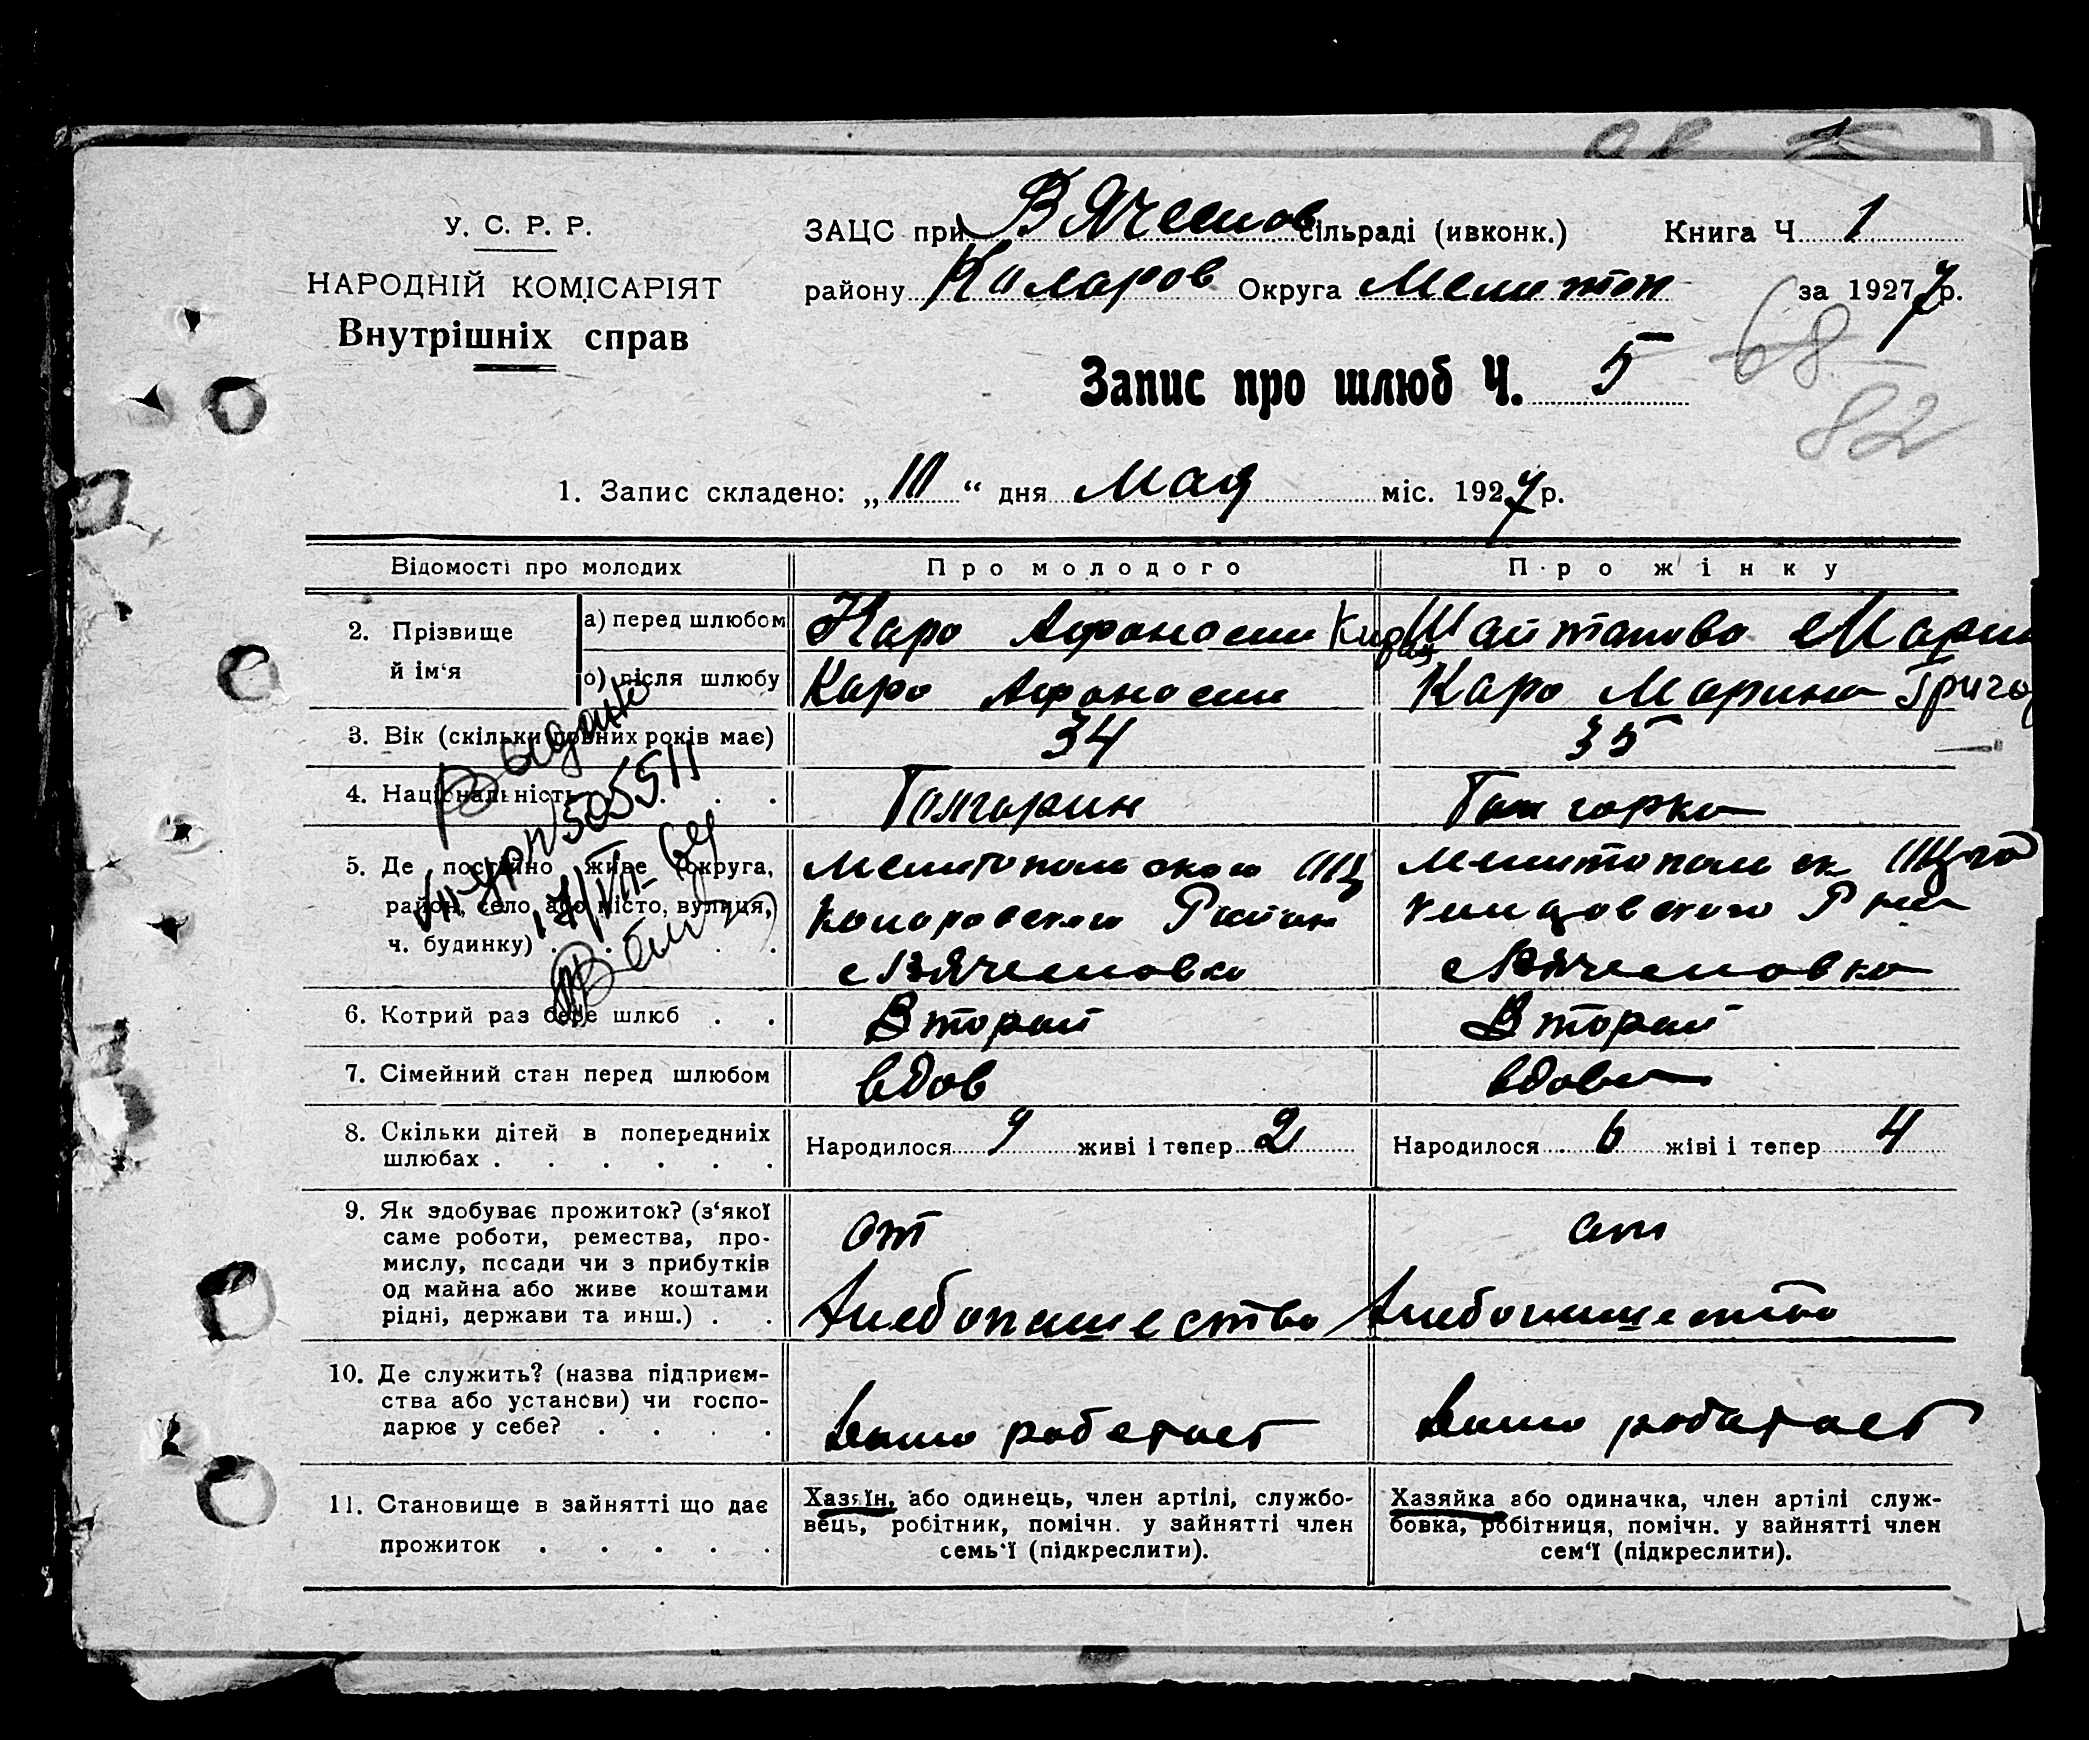 У. С. Р. Р.
НАРОДНІЙ КОМІСАРІЯТ
Внутрішніх справ
ЗАЦС при Вячеслов сільраді (ивконк.) Книга Ч. 1
району Коларов Округа Мелитоп за 1927 7 р.
Запис про шлюб Ч. 5
68
82
1. Запис складено: „10“ дня Мая міс. 1927 р.
Відомості про молодих Про молодого Про жінку
2. Прізвище й ім‘я
а) перед шлюбом Каро Афонасии Шайтанова Мари
о) після шлюбу Каро Афонасии Каро Марина Григо
3. Вік (скільки повних років має) 34 35
4. Національність . . . Болгарин Болгорка
5. Де постійно живе (округа, район, село, або місто, вулиця, ч. будинку) . . .
Мелитополь ского
Коларовского Район
с Вячесловка
Мелитопол ск
с Вячесловка
6. Котрий раз бере шлюб . . Второй Второй
7. Сімейний стан перед шлюбом вдов вдова
8. Скільки дітей в попередніх шлюбах . . . . . .
Народилося 9 живі і тепер 2 Народилося 6 жіві і тепер 4
9. Як здобуває прожиток? (з‘якої
саме роботи, ремества, про-
мислу, посади чи з прибутків
од майна або живе коштами
рідні, держави та инш.) . .
от
Хлебопашество
от
Хлебопашество
10. Де служить? (назва підприєм-
ства або установи) чи госпо-
дарює у себе? . . . .
дома работает дома работает
11. Становище в зайнятті що дає
прожиток . . . . .
Хазяїн, або одинець, член артілі, службо-
вець, робітник, помічн. у зайнятті член
семь‘ї (підкреслити).
Хазяйка або одиначка, член артілі служ-
бовка, робітниця, помічн. у зайнятті член
сем‘ї (підкреслити).
Видано
505511